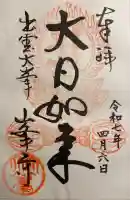 奉拝
令和七年
四月六日
大日如来
出雲大峯
峯寺